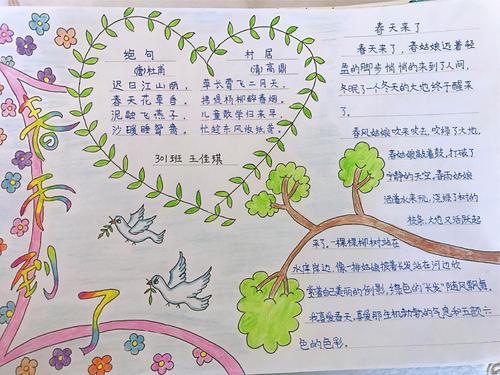 春天到了
绝句
(唐)杜甫
迟日江山丽，
春天花草香。
泥融飞燕子，
沙暖睡鸳鸯。
村居
(清)高鼎
草长莺飞二月天，
拂堤杨柳醉春烟。
儿童散学归来早，
忙趁东风放纸鸢。
301班 王佳琪
春天来了
春天来了，春姑娘迈着轻
盈的脚步悄悄的来到了人间，
冬眠了一个冬天的大地终于醒来
了。
春风姑娘吹来吹去，吹绿了大地，
春姑娘敲着鼓，打破了
宁静的天空，春雨姑娘
洒落水来玩，浇绿了树的
枝条，大地又活跃起
来了，一棵棵柳树站在
水库岸边，像一排姑娘披着长发站在河边欣
赏着自己美丽的倒影，绿色的“长发”随风飘舞。
我喜爱春天，喜爱那生机勃勃的气息和五颜六
色的色彩。